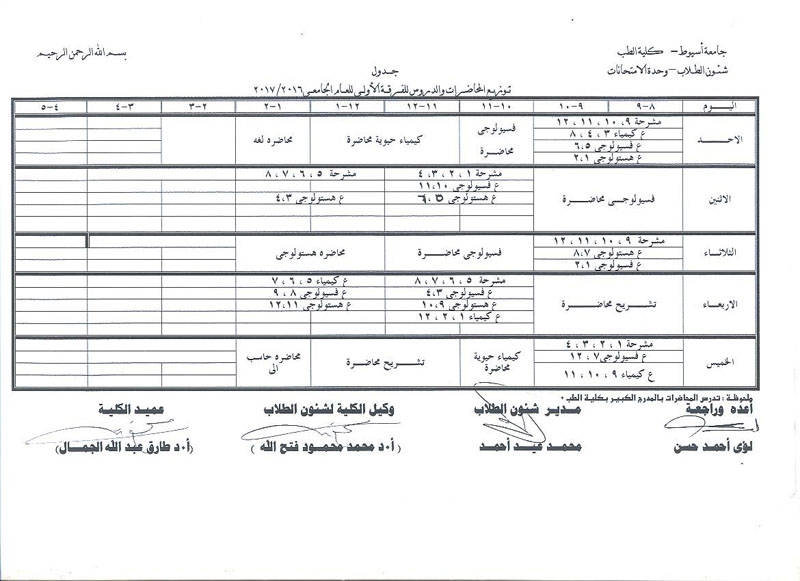 بسم الله الرحمن الرحيم
جامعة أسيوط - كلية الطب
شئون الطلاب - وحدة الامتحانات
جدول
توزيع المحاضرات والدروس للفرقة الأولى للعام الجامعى ٢٠١٧/٢٠١٦
اليوم ٨-٩ ٩-١٠ ١٠-١١ ١١-١٢ ١٢-١ ١-٢ ٢-٣ ٣-٤ ٤-٥
الاحد
مشرحة ٩ ، ١٠ ، ١١ ، ١٢
ع كيمياء ٣ ، ٤ ، ٨
ع فسيولوجى ٦،٥
ع هستولوجى ٢،١
فسيولوجى محاضرة
كيمياء حيوية محاضرة
محاضره لغه
الاثنين
فسيولوجى محاضرة
مشرحة ١ ، ٢ ، ٣ ، ٤
ع فسيولوجى ١١،١٠
ع هستولوجى
مشرحة ٥ ، ٦ ، ٧ ، ٨
ع هستولوجى ٤،٣
الثلاثاء
مشرحة ٩ ، ١٠ ، ١١ ، ١٢
ع هستولوجى ٨،٧
ع فسيولوجى ٢،١
فسيولوجى محاضرة
محاضره هستولوجى
الاربعاء
تشريح محاضرة
مشرحة ٥ ، ٦ ، ٧ ، ٨
ع فسيولوجى ٤،٣
ع هستولوجى ١٠،٩
ع كيمياء ١ ، ٢ ، ١٢
ع كيمياء ٥ ، ٦ ، ٧
ع فسيولوجى ٨ ، ٩
ع هستولوجى ١٢،١١
الخميس
مشرحة ١ ، ٢ ، ٣ ، ٤
ع فسيولوجى ٧ ، ١٢
ع كيمياء ٩ ، ١٠ ، ١١
كيمياء حيوية محاضرة
تشريح محاضرة
محاضره حاسب الى
ملحوظة : تدرس المحاضرات بالمدرج الكبير بكلية الطب
أعده وراجعة مدير شئون الطلاب وكيل الكلية لشئون الطلاب عميد الكلية
لؤى أحمد حسن محمد عيد أحمد (أ.د محمد محمود فتح الله) (أ.د طارق عبد الله الجمال)